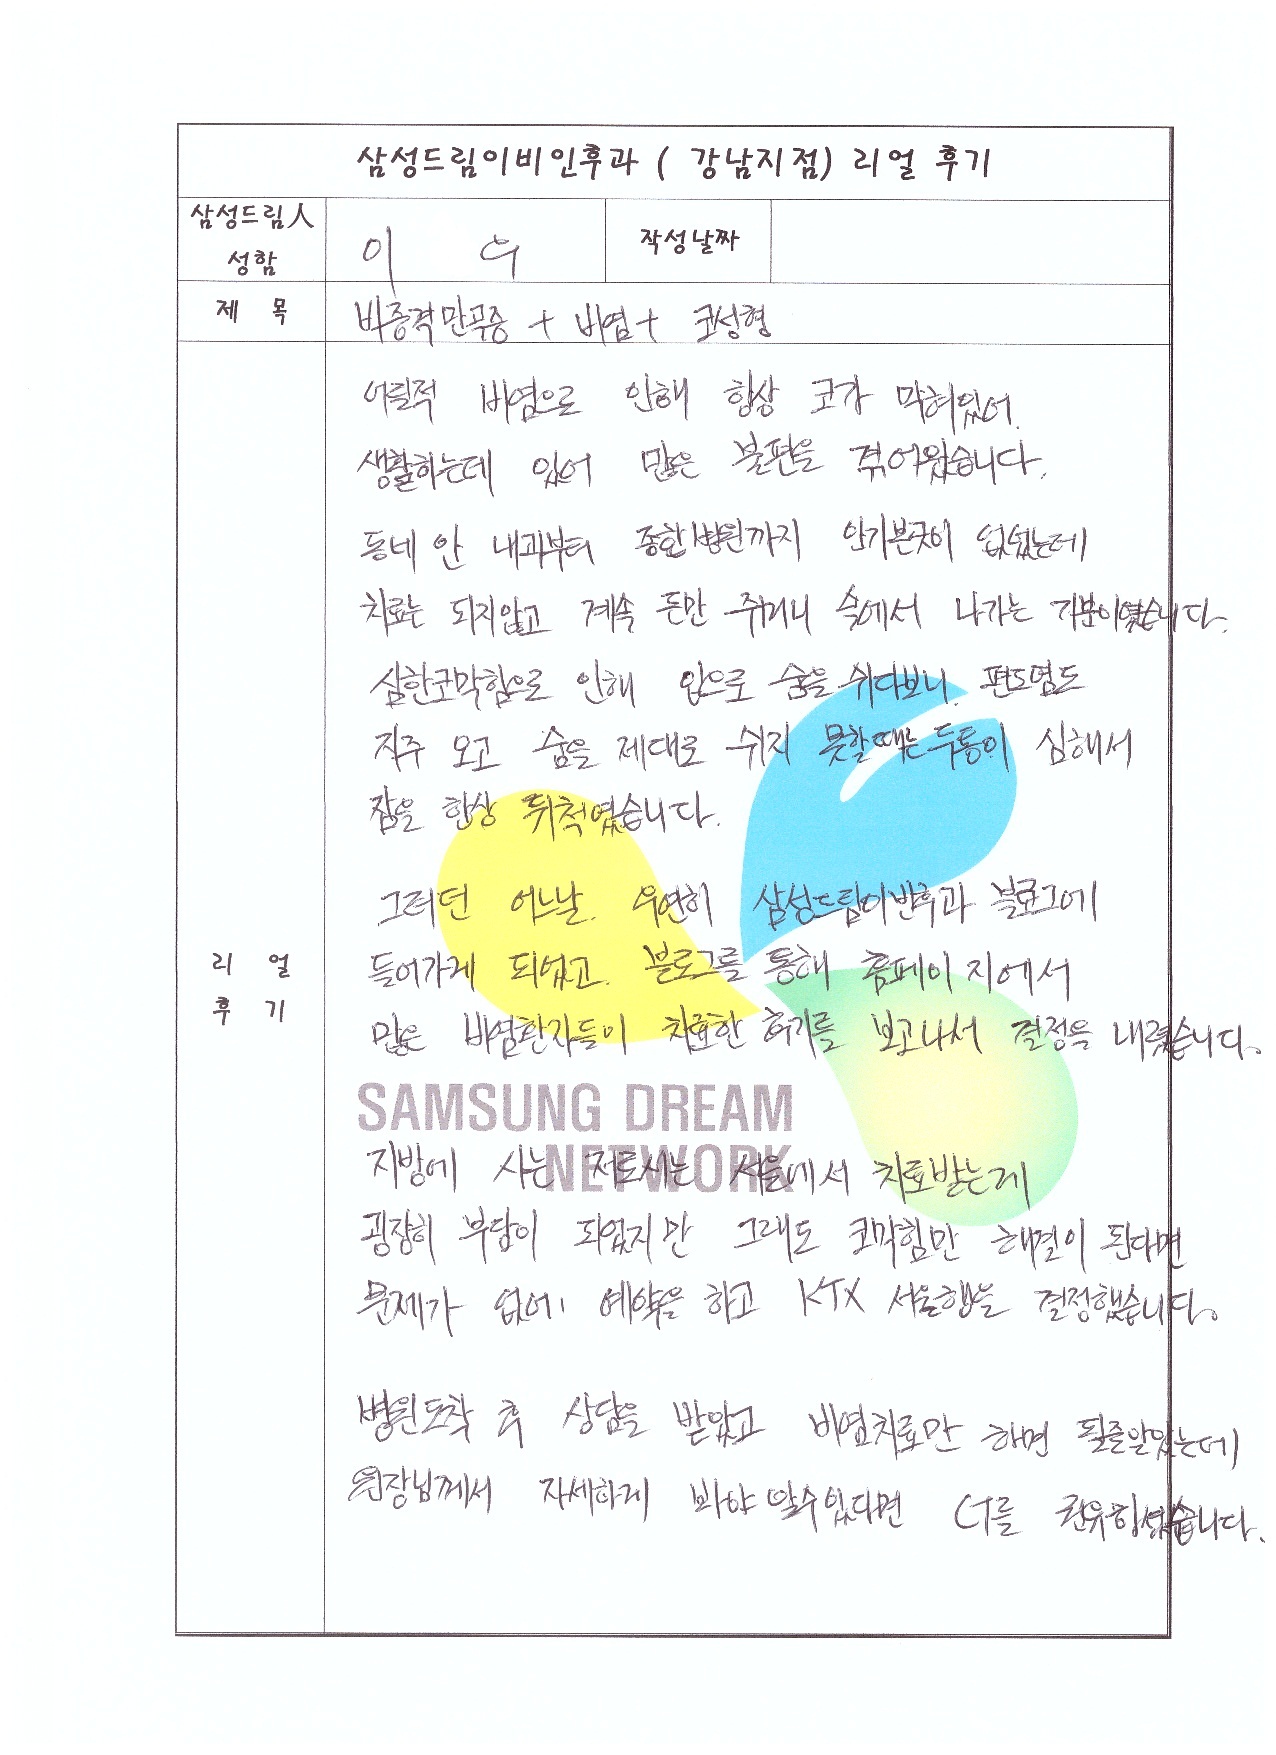 삼성드림이비인후과 ( 강남지점) 리얼 후기
삼성드림人
성함
이 우
작성날짜
제 목
비중격만곡증 + 비염 + 코성형
어릴적 비염으로 인해 항상 코가 막혀있어.
생활하는데 있어 많은 불편을 겪어왔습니다.
동네 안 내과부터 종합병원까지 안가본곳이 없었는데
치료는 되지않고 계속 돈만 주머니 속에서 나가는 기분이였습니다.
심한코막힘으로 인해 입으로 숨을 쉬다보니. 편도염도
자주 오고 숨을 제대로 쉬지 못할때는 두통이 심해서
잠을 항상 뒤척였습니다.
그러던 어느날. 우연히 삼성드림이비인후과 블로그에
들어가게 되었고. 블로그를 통해 홈페이지에서
많은 비염환자들이 치료한 후기를 보고나서 결정을 내렸습니다.
SAMSUNG DREAM
NETWORK
지방에 사는 저로서는 서울에서 치료받는게
굉장히 부담이 되었지만 그래도 코막힘만 해결이 된다면
문제가 없어 예약을 하고 KTX 서울행을 결정했습니다.
리 얼
후 기
병원도착 후 상담을 받았고 비염치료만 하면 될줄알았는데
원장님께서 자세하게 봐야 알수있다면 CT를 권유하셨습니다.